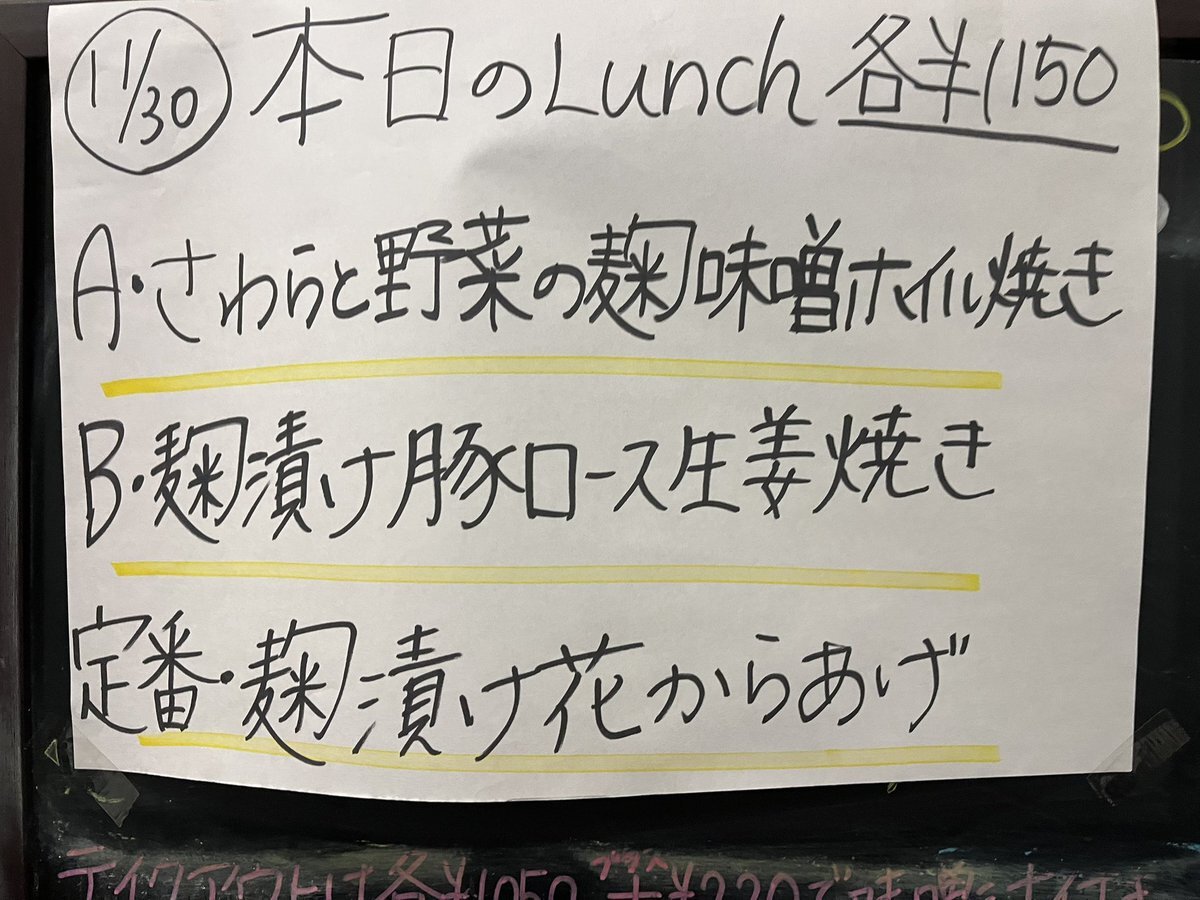 11/30 本日のLunch 各¥1150
A・さわらと野菜の麹味噌ホイル焼き
B・麹漬け豚ロース生姜焼き
定番・麹漬け花からあげ
テイクアウトは各¥1050